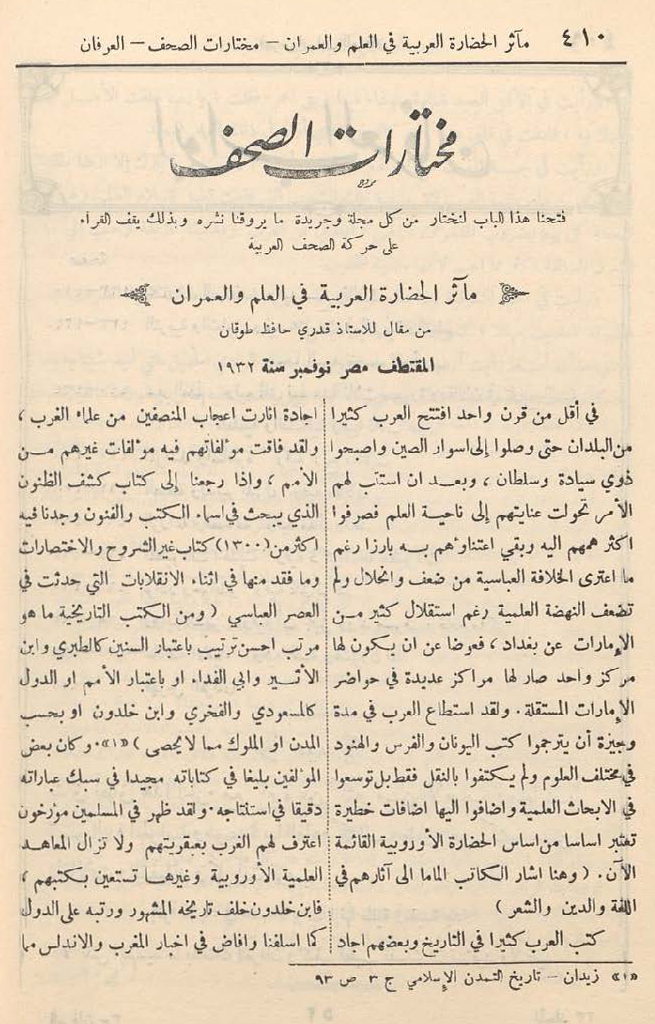 ٤١٠ مآثر الحضارة العربية في العلم والعمران – مختارات الصحف – العرفان
مختارات الصحف
فتحنا هذا الباب لنختار من كل مجلة وجريدة ما يروقنا نشره وبذلك يقف القراء
على حركة الصحف العربية
مآثر الحضارة العربية في العلم والعمران
من مقال للاستاذ قدري حافظ طوقان
المقتطف مصر نوفمبر سنة ١٩٣٢
في أقل من قرن واحد افتتح العرب كثيرا
من البلدان حتى وصلوا إلى اسوار الصين واصبحوا
ذوي سيادة وسلطان ، وبعد ان استتب لهم
الأمر تحولت عنايتهم إلى ناحية العلم فصرفوا
اكثر همهم اليه وبقي اعتناؤهم به بارزا رغم
ما اعترى الخلافة العباسية من ضعف وانحلال ولم
تضعف النهضة العلمية رغم استقلال كثير من
الإمارات عن بغداد ، فعوضا عن ان يكون لها
مركز واحد صار لها مراكز عديدة في حواضر
الإمارات المستقلة . ولقد استطاع العرب في مدة
وجيزة أن يترجموا كتب اليونان والفرس والهنود
في مختلف العلوم ولم يكتفوا بالنقل فقط بل توسعوا
في الابحاث العلمية واضافوا اليها اضافات خطيرة
تعتبر اساسا من اساس الحضارة الأوروبية القائمة
الآن . ( وهنا اشار الكاتب الماما الى آثارهم في
اللغة والدين والشعر )
كتب العرب كثيرا في التاريخ وبعضهم اجاد
اجادة اثارت اعجاب المنصفين من علماء الغرب ،
ولقد فاقت مؤلفاتهم فيه مؤلفات غيرهم من
الأمم ، واذا رجعنا إلى كتاب كشف الظنون
الذي يبحث في اسماء الكتب والفنون وجدنا فيه
اكثر من (١٣٠٠) كتاب غير الشروح والاختصارات
وما فقد منها في اثناء الانقلابات التي حدثت في
العصر العباسي ( ومن الكتب التاريخية ما هو
مرتب احسن ترتيب باعتبار السنين كالطبري وابن
الأثير وابي الفداء او باعتبار الأمم او الدول
كالمسعودي والفخري وابن خلدون او بحسب
المدن او الملوك مما لا يحصى ) «١» . وكان بعض
المؤلفين بليغا في كتاباته مجيدا في سبك عباراته
دقيقا في استنتاجه . ولقد ظهر في المسلمين مؤرخون
اعترف لهم الغرب بعبقريتهم ولا تزال المعاهد
العلمية الأوروبية وغيرها تستعين بكتبهم ،
فابن خلدون خلف تاريخه المشهور ورتبه على الدول
كما اسلفنا وافاض في اخبار المغرب والاندلس مما
«١» زيدان – تاريخ التمدن الإسلامي ج ٣ ص ٩٣